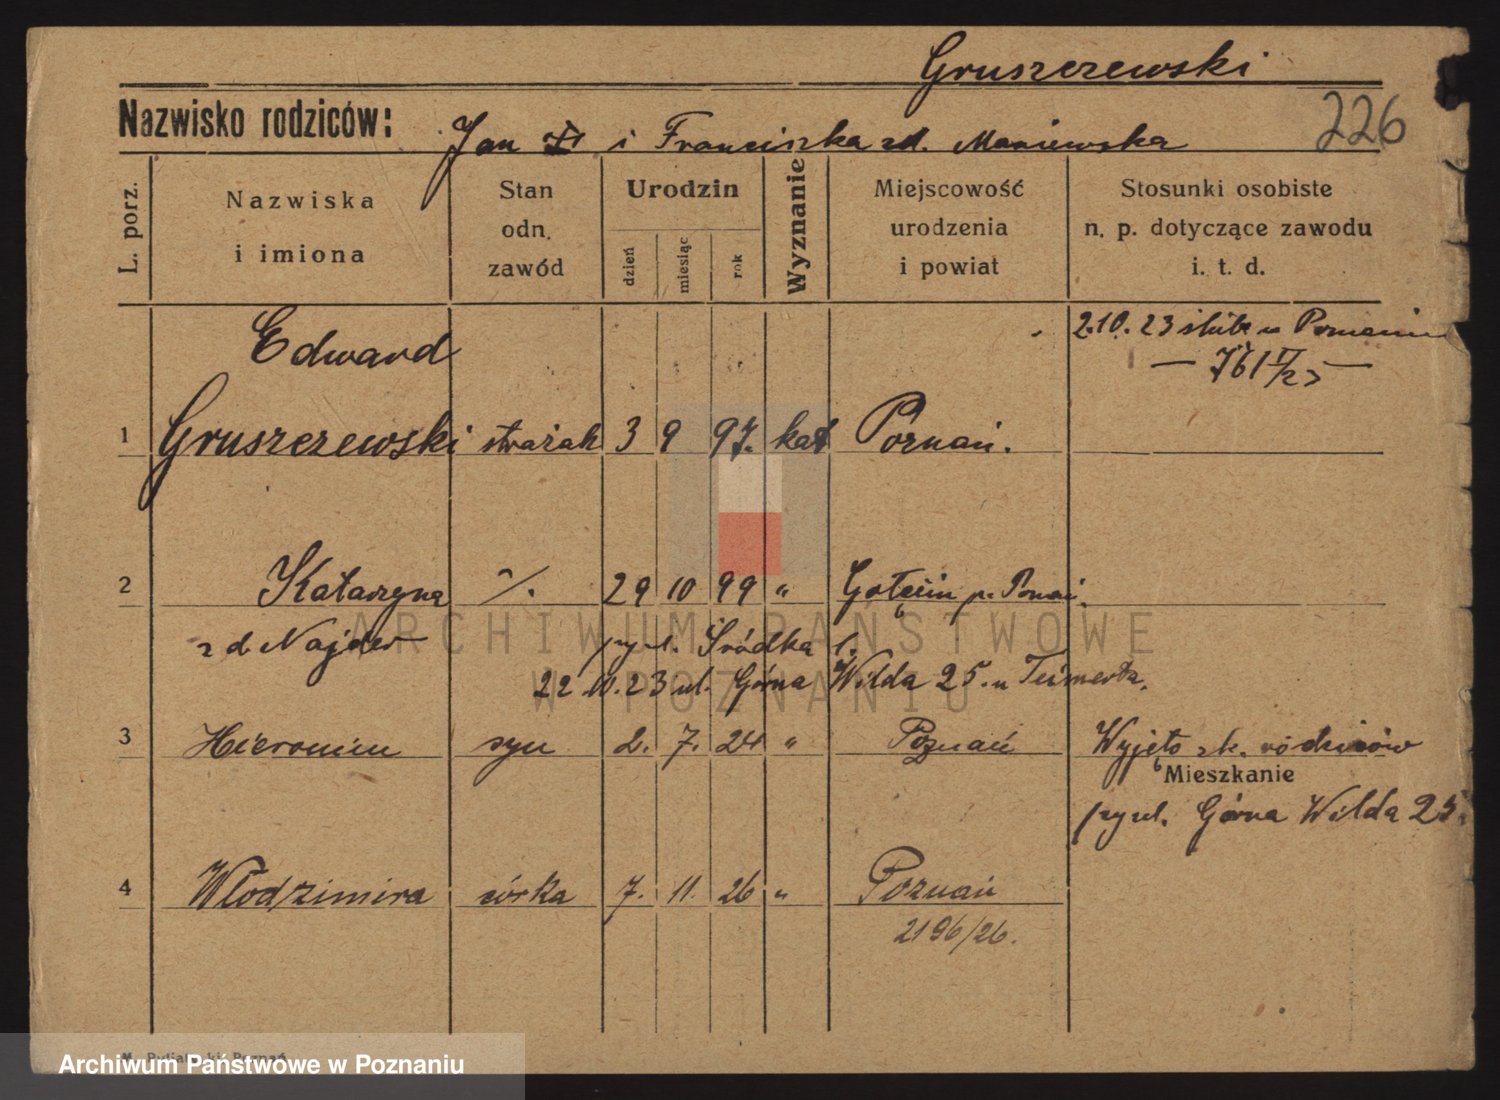 Gruszczewski
Nazwisko rodziców:
Jan i Franciszka zd. Maniewska
226
L. porz.
Nazwiska
i imiona
Stan
odn.
zawód
Urodzin
dzień
miesiąc
rok
Wyznanie
Miejscowość
urodzenia
i powiat
Stosunki osobiste
n. p. dotyczące zawodu
i. t. d.
Edward
2.10.23 ślub w Poznaniu
1 Gruszczewski strażak 3 9 97. kat Poznań.
2 Katarzyna 29 10 99 " Golęcin p. Poznań.
zd. Najder
Śródka
22.10.23 ul. Górna Wilda 25. u
3 Hieronim syn 2. 7. 24 " Poznań Wyjęto z k. rodziców
Mieszkanie
Górna Wilda 25.
4 Włodzimira córka 7. 11. 26 " Poznań
2196/26.
ARCHIWUM PAŃSTWOWE
W POZNANIU
Archiwum Państwowe w Poznaniu